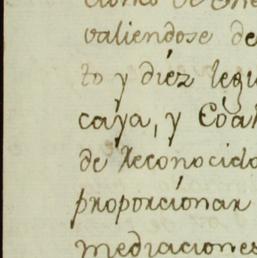 valiendose de
to y diéz legu
caya, y Coah
de reconocido
proporcionar
mediaciones